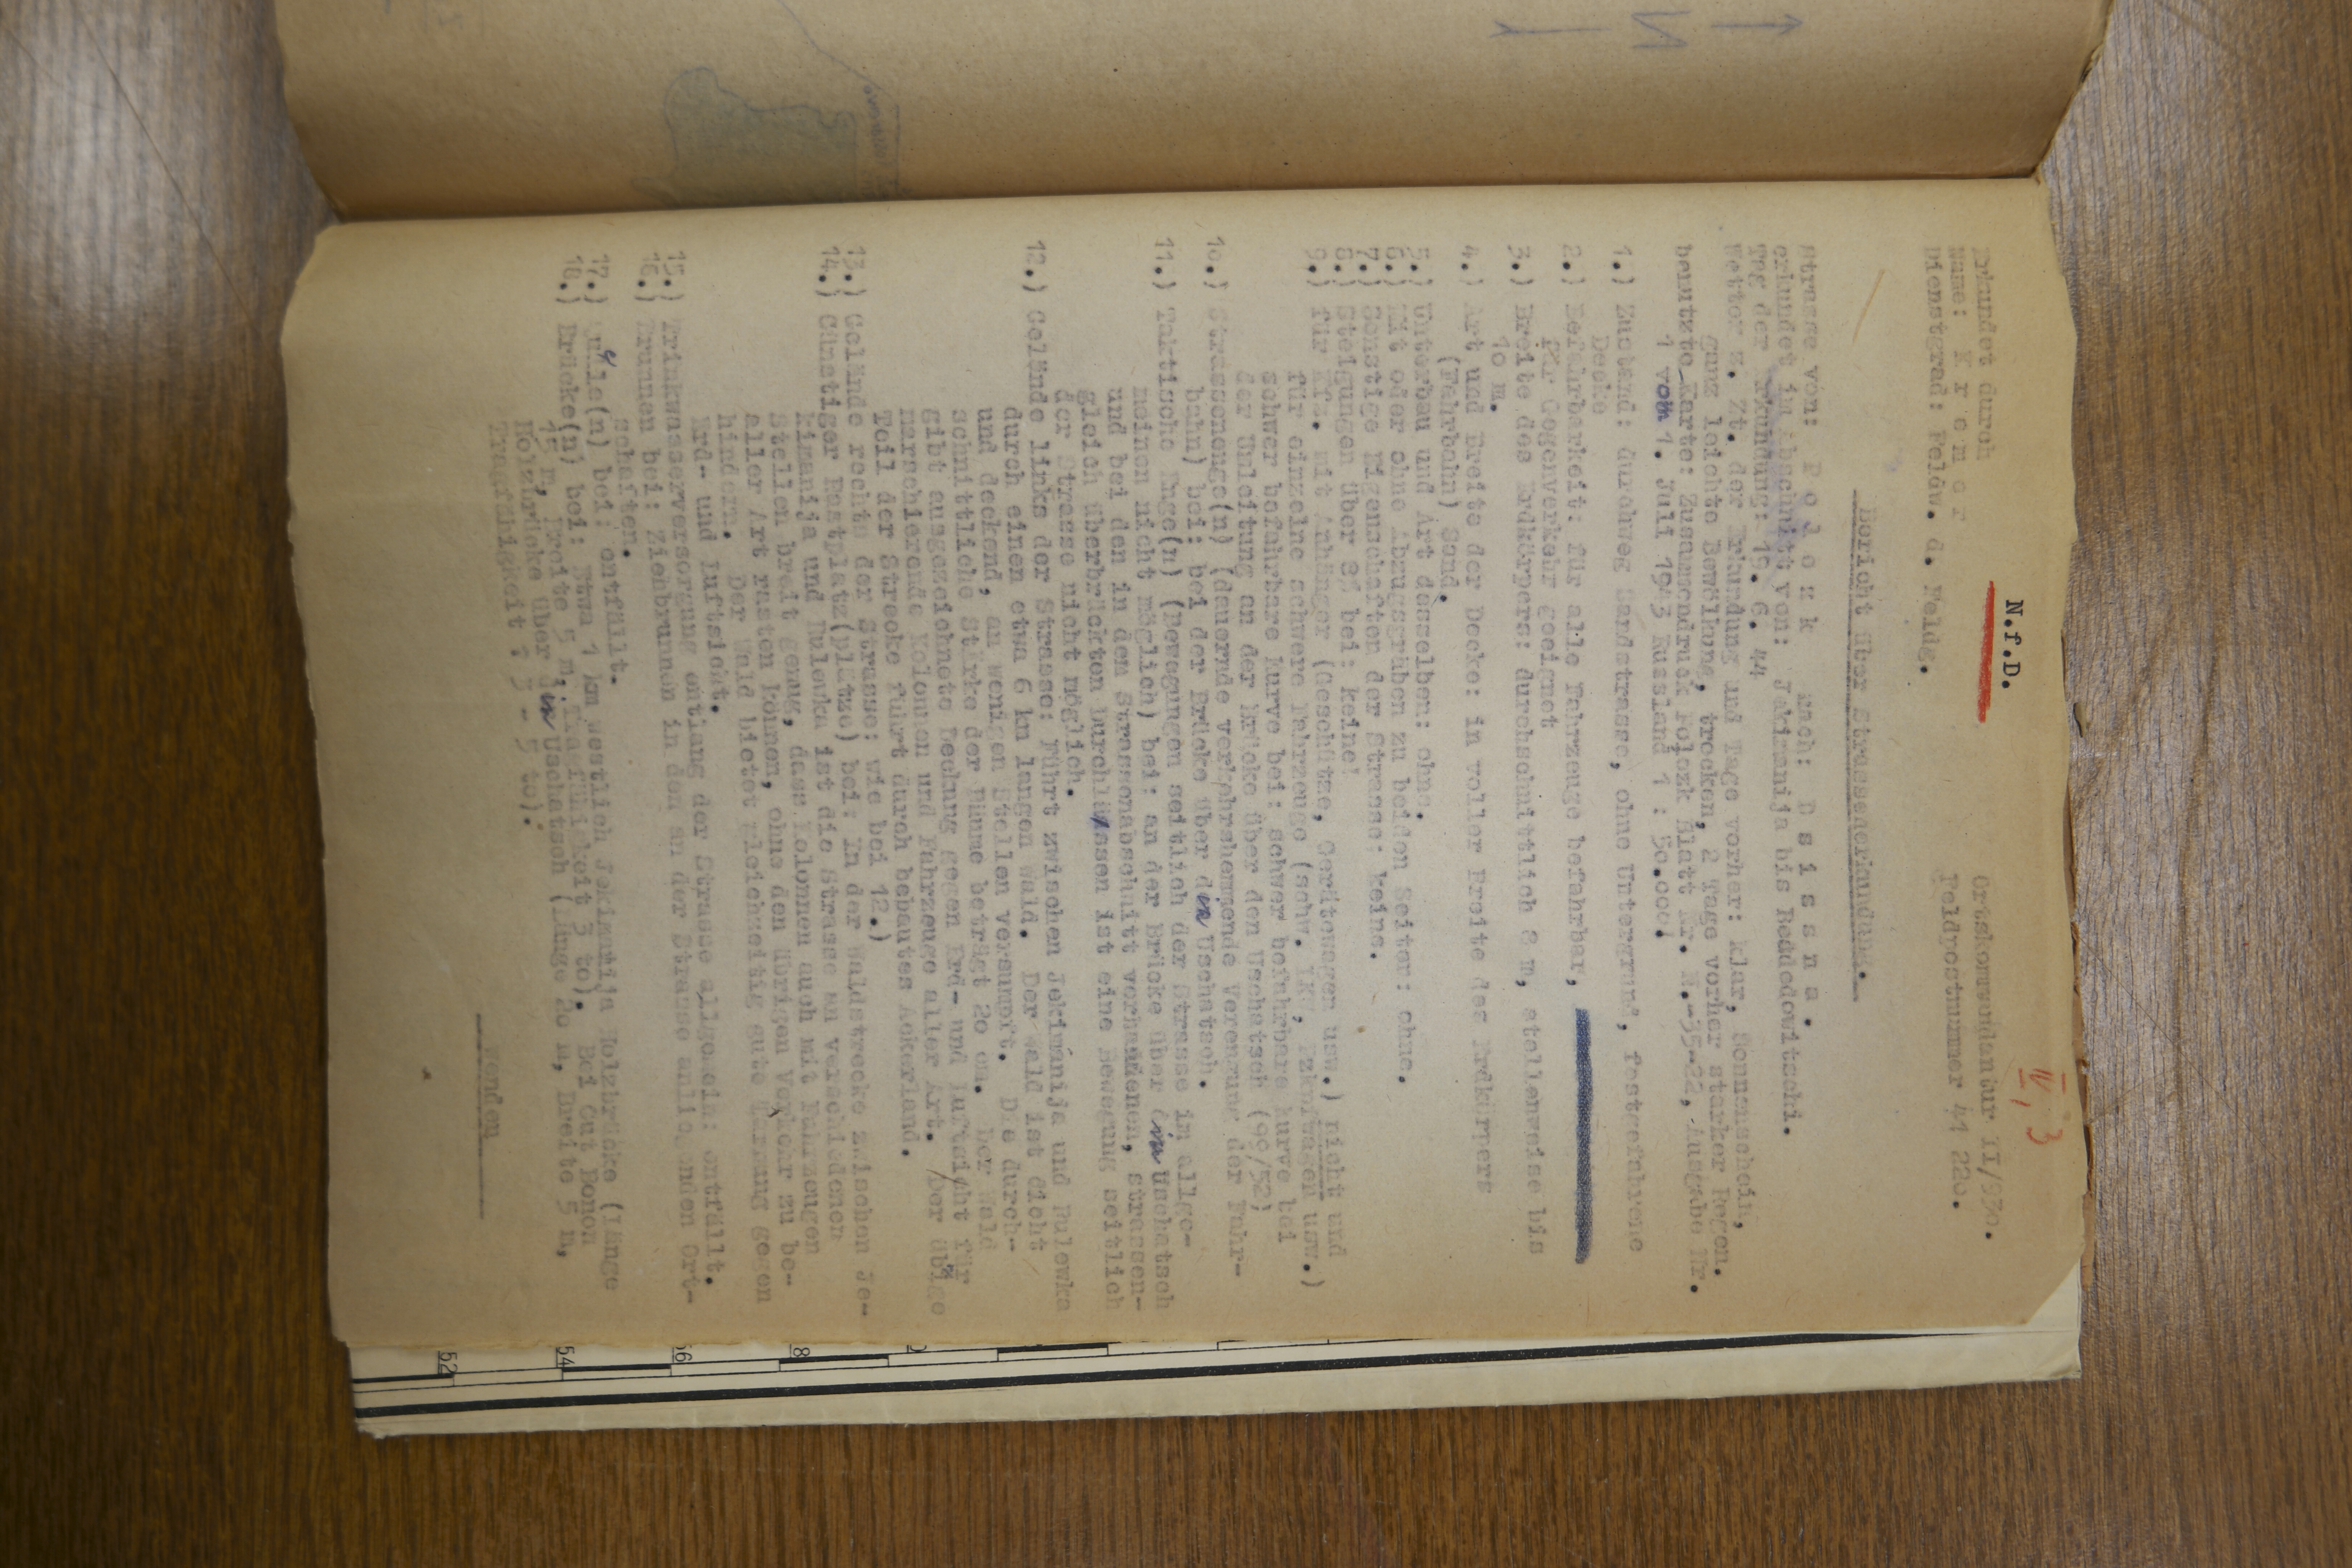 N.f.D.
IV, 3
Erkundet durch
Name: K r e m e r
Dienstgrad: Feldw. d. Feldg.
Ortskommandantur II/930.
Feldpostnummer 44 220.
Bericht über Strassenerkundung.
Strasse von: P o l o z k nach: D s i s n a .
erkundet im Abschnitt von: Jekimanija bis Beddedowitschi.
Tag der Erkundung: 19. 6. 44
Wetter z. Zt. der Erkundung und Tage vorher: klar, Sonnenschein,
ganz leichte Bewölkung, trocken, 2 Tage vorher starker Regen.
benutzte Karte: Zusammendruck Polozk Blatt Nr. N.-35-22, Ausgabe Nr.
1 vom 1. Juli 1943 Russland 1 : 50.000!
1.) Zustand: durchweg Sandstrasse, ohne Untergrund, festgefahrene
Decke
2.) Befahrbarkeit: für alle Fahrzeuge befahrbar,
für Gegenverkehr geeignet
3.) Breite des Erdkörpers: durchschnittlich 8 m, stellenweise bis
10 m.
4.) Art und Breite der Decke: in voller Breite des Erdkörpers
(Fahrbahn) Sand.
5.) Unterbau und Art desselben: ohne.
6.) Mit oder ohne Abzugsgräben zu beiden Seiten: ohne.
7.) Sonstige Eigenschaften der Strasse: keine.
8.) Steigungen über 8% bei: keine!
9.) für Kfz. mit Anhänger (Geschütze, Gerätewagen usw.) nicht und
für einzelne schwere Fahrzeuge (schw. LKW, Pzkpfwagen usw.)
schwer befahrbare Kurve bei: schwer befahrbare Kurve bei
der Umleitung an der Brücke über den Uschatsch (90/52)
10.) Strassenenge(n) (dauernde verkehrshemmende Verengung der Fahr-
bahn) bei: bei der Brücke über den Uschatsch.
11.) Taktische Enge(n) (Bewegungen seitlich der Strasse im allge-
meinen nicht möglich) bei: an der Brücke über den Uschatsch
und bei den in dem Strassenabschnitt vorhandenen, strassen-
gleich überbrückten Durchlässen ist eine Bewegung seitlich
der Strasse nicht möglich.
12.) Gelände links der Strasse: führt zwischen Jekimanija und Rulewka
durch einen etwa 6 km langen Wald. Der Wald ist dicht
und deckend, an wenigen Stellen versumpft. Die durch-
schnittliche Stärke der Bäume beträgt 20 cm. Der Wald
gibt ausgezeichnete Deckung gegen Erd- und Luftsicht für
marschierende Kolonnen und Fahrzeuge aller Art. /Der übrige
Teil der Strecke führt durch bebautes Ackerland.
13.) Gelände rechts der Strasse: wie bei 12.)
14.) Günstiger Rastplatz(plätze) bei: In der Waldstrecke zwischen Je-
kimanija und Rulewka ist die Strasse an verschiedenen
Stellen breit genug, dass Kolonnen auch mit Fahrzeugen
aller Art rasten können, ohne den übrigen Verkehr zu be-
hindern. Der Wald bietet gleichzeitig gute Tarnung gegen
Erd- und Luftsicht.
15.) Trinkwasserversorgung entlang der Strasse allgemein: entfällt.
16.) Brunnen bei: Ziehbrunnen in den an der Strasse anliegenden Ort-
schaften.
17.) Quelle(n) bei: entfällt.
18.) Brücke(n) bei: Etwa 1 km westlich Jekimanija Holzbrücke (Länge
15 m, Breite 5 m, Tragfähigkeit 3 to). Bei Gut Bonon
Holzbrücke über den Uschatsch (Länge 20 m, Breite 5 m,
Tragfähigkeit : 3 - 5 to).
wenden
52
54
56
8